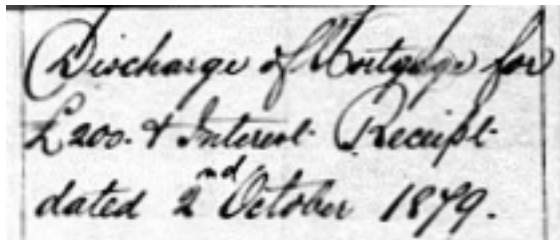 Discharge of Mortgage for
£200. & Interest Receipt
dated 2nd October 1879.